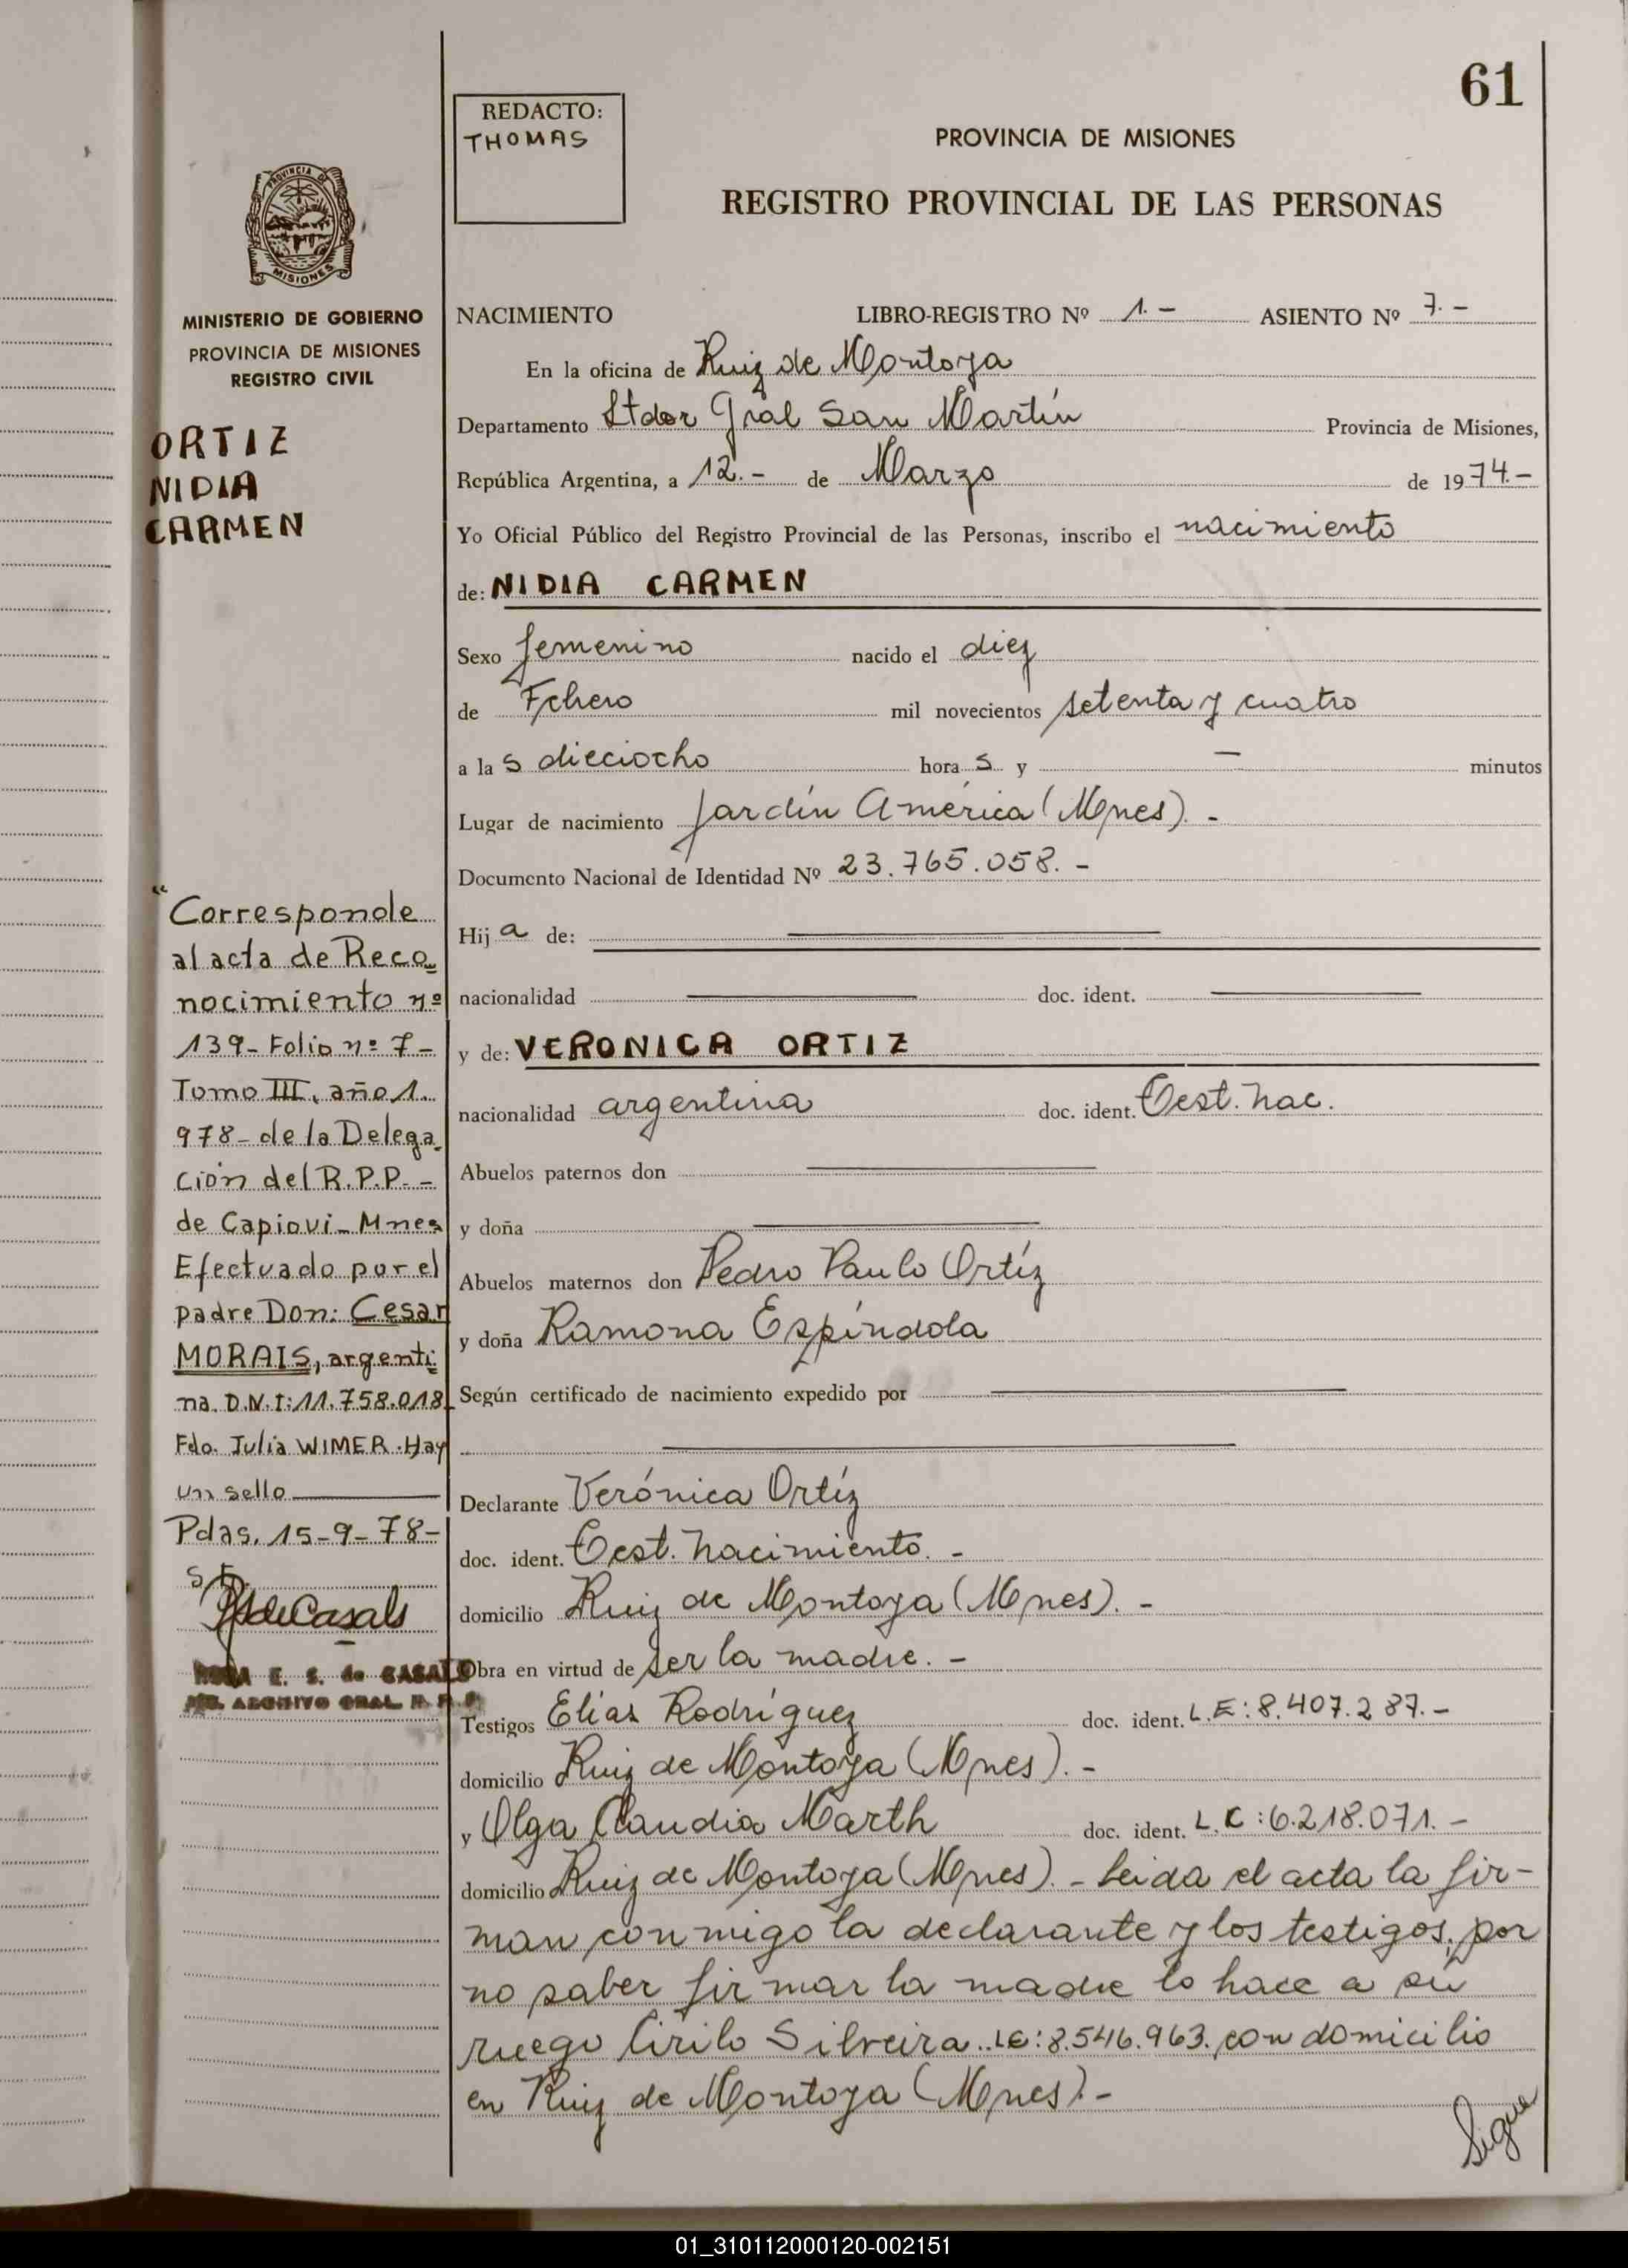 61
REDACTO:
THOMAS
PROVINCIA DE MISIONES
REGISTRO PROVINCIAL DE LAS PERSONAS
PROVINCIA DE
MISIONES
MINISTERIO DE GOBIERNO
PROVINCIA DE MISIONES
REGISTRO CIVIL
ORTIZ
NIDIA
CARMEN
"Corresponde
al acta de Reco
nocimiento nº
139- Folio nº 7-
Tomo III, año 1.
978- de la Delega
ción del R.P.P.-
de Capiovi- Mnes
Efectuado por el
padre Don: Cesar
MORAIS, argenti
na. D.N.I: 11.758.018
Fdo. Julia WIMER. Hay
un sello
Pdas. 15-9-78-
RSdeCasals
ROSA E. S. de CASALS
ARCHIVO GRAL. R. P. P.
NACIMIENTO LIBRO-REGISTRO Nº 1.- ASIENTO Nº 7.-
En la oficina de Ruiz de Montoya
Departamento Ltdor Gral San Martín Provincia de Misiones,
República Argentina, a 12.- de Marzo de 1974.-
Yo Oficial Público del Registro Provincial de las Personas, inscribo el nacimiento
de: NIDIA CARMEN
Sexo femenino nacido el diez
de Febrero mil novecientos setenta y cuatro
a las dieciocho horas y — minutos
Lugar de nacimiento Jardín América (Mnes). -
Documento Nacional de Identidad Nº 23.765.058. -
Hija de:
nacionalidad doc. ident.
y de: VERONICA ORTIZ
nacionalidad argentina doc. ident. Test. Nac.
Abuelos paternos don
y doña
Abuelos maternos don Pedro Paulo Ortíz
y doña Ramona Espíndola
Según certificado de nacimiento expedido por
Declarante Verónica Ortíz
doc. ident. Test. Nacimiento. -
domicilio Ruiz de Montoya (Mnes). -
Obra en virtud de ser la madre. -
Testigos Elías Rodríguez doc. ident. L.E: 8.407.287. -
domicilio Ruiz de Montoya (Mnes). -
y Olga Claudia Marth doc. ident. L.C: 6.218.071. -
domicilio Ruiz de Montoya (Mnes). - Leida el acta la fir-
man conmigo la declarante y los testigos, por
no saber firmar la madre lo hace a su
ruego Cirilo Silveira.. LE: 8.546.963. con domicilio
en Ruiz de Montoya (Mnes). -
Sigue
01_310112000120-002151